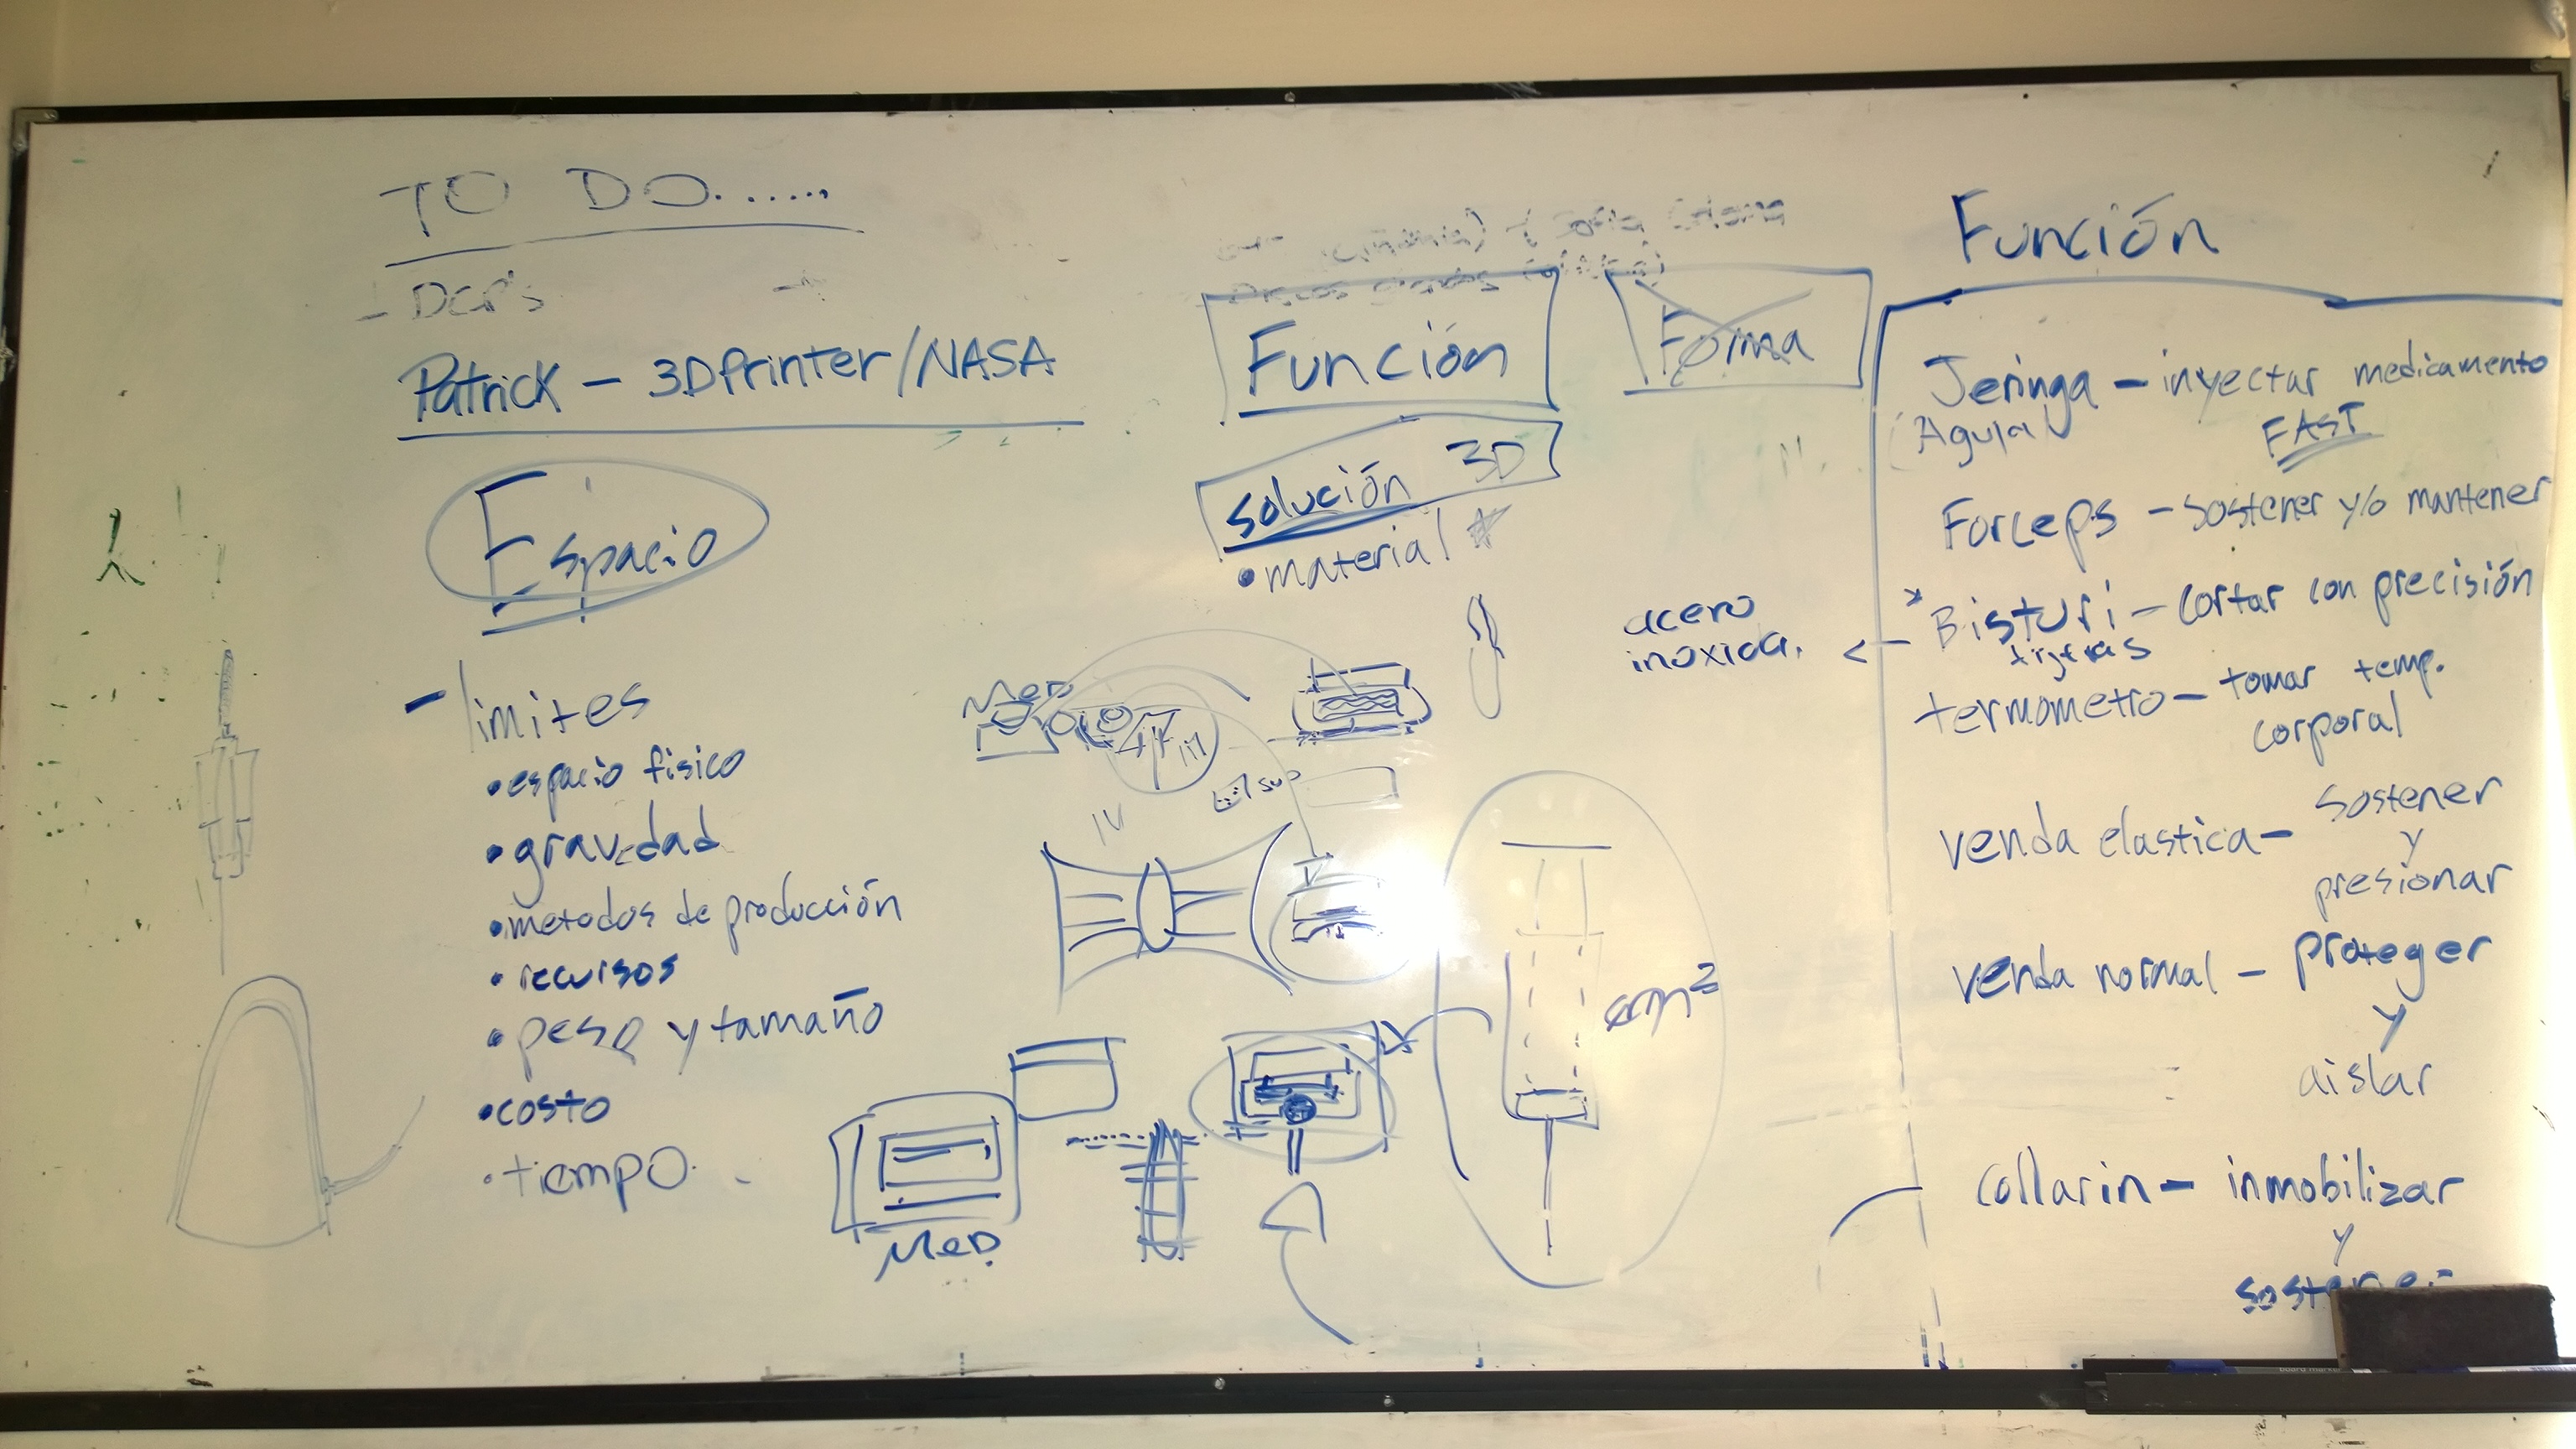 TO DO......
- DCP's
Patrick - 3DPrinter/NASA
Espacio
- limites
• espacio fisico
• gravedad
• metodos de producción
• recursos
• peso y tamaño
• costo
• tiempo
Función
Forma
Solución 3D
• material *
acero
inoxida.
MeD
IV
cm²
MeD.
Función
Jeringa - inyectar medicamento
Aguja
FAST
Forceps - Sostener y/o mantener
* Bisturi - cortar con precisión
tijeras
termometro - tomar temp.
corporal
venda elastica - sostener
y
presionar
venda normal - proteger
y
aislar
Collarin - inmobilizar
y